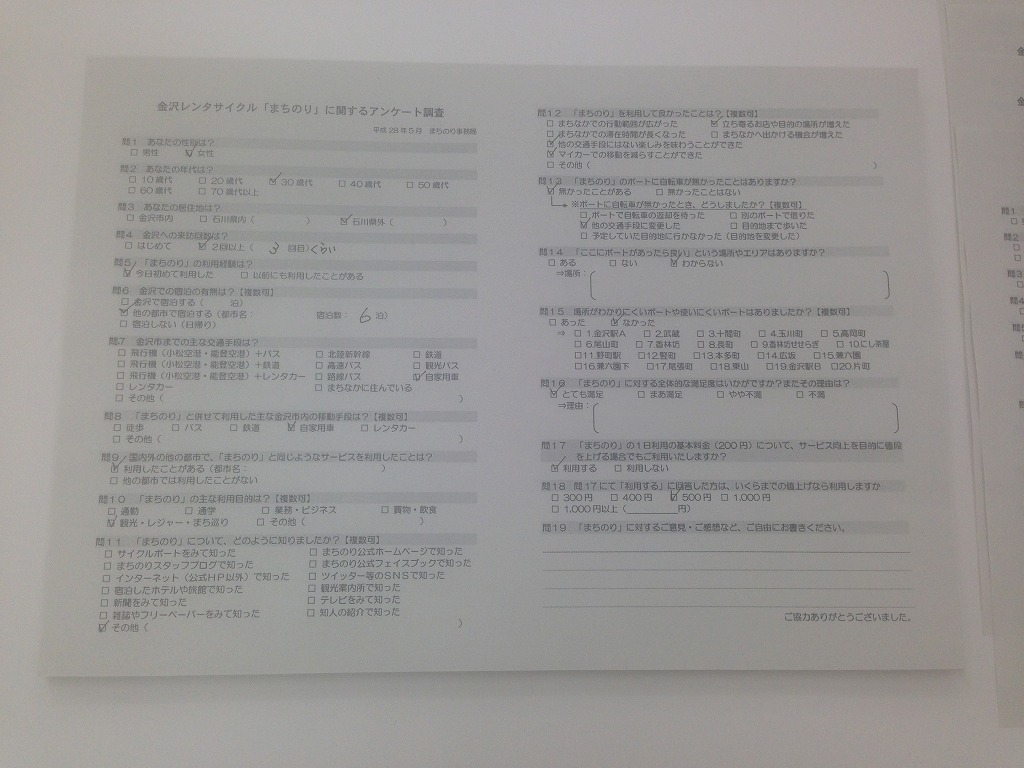 金沢レンタサイクル「まちのり」に関するアンケート調査
平成28年5月 まちのり事務局
問1 あなたの性別は?
□ 男性 ☑ 女性
問2 あなたの年代は?
□ 10歳代 □ 20歳代 ☑ 30歳代 □ 40歳代 □ 50歳代
□ 60歳代 □ 70歳代以上
問3 あなたの居住地は?
□ 金沢市内 □ 石川県内( ) ☑ 石川県外( )
問4 金沢への来訪回数は?
□ はじめて ☑ 2回以上( 3 回目)くらい
問5 「まちのり」の利用経験は?
☑ 今日初めて利用した □ 以前にも利用したことがある
問6 金沢での宿泊の有無は?【複数可】
□ 金沢で宿泊する( 泊)
☑ 他の都市で宿泊する(都市名: 宿泊数: 6 泊)
□ 宿泊しない(日帰り)
問7 金沢市までの主な交通手段は?
□ 飛行機(小松空港・能登空港)+バス □ 北陸新幹線 □ 鉄道
□ 飛行機(小松空港・能登空港)+鉄道 □ 高速バス □ 観光バス
□ 飛行機(小松空港・能登空港)+レンタカー □ 路線バス ☑ 自家用車
□ レンタカー □ まちなかに住んでいる
□ その他( )
問8 「まちのり」と併せて利用した主な金沢市内の移動手段は?【複数可】
□ 徒歩 □ バス □ 鉄道 ☑ 自家用車 □ レンタカー
□ その他( )
問9 国内外の他の都市で、「まちのり」と同じようなサービスを利用したことは?
☑ 利用したことがある(都市名: )
□ 他の都市では利用したことがない
問10 「まちのり」の主な利用目的は?【複数可】
□ 通勤 □ 通学 □ 業務・ビジネス □ 買物・飲食
☑ 観光・レジャー・まち巡り □ その他( )
問11 「まちのり」について、どのように知りましたか?【複数可】
□ サイクルポートをみて知った □ まちのり公式ホームページで知った
□ まちのりスタッフブログで知った □ まちのり公式フェイスブックで知った
□ インターネット(公式HP以外)で知った □ ツイッター等のSNSで知った
□ 宿泊したホテルや旅館で知った □ 観光案内所で知った
□ 新聞をみて知った □ テレビをみて知った
□ 雑誌やフリーペーパーをみて知った □ 知人の紹介で知った
☑ その他( )
問12 「まちのり」を利用して良かったことは?【複数可】
□ まちなかでの行動範囲が広がった ☑ 立ち寄るお店や目的の場所が増えた
□ まちなかでの滞在時間が長くなった □ まちなかへ出かける機会が増えた
☑ 他の交通手段にはない楽しみを味わうことができた
☑ マイカーでの移動を減らすことができた
□ その他( )
問13 「まちのり」のポートに自転車が無かったことはありますか?
☑ 無かったことがある □ 無かったことはない
※ポートに自転車が無かったとき、どうしましたか?【複数可】
□ ポートで自転車の返却を待った □ 別のポートで借りた
☑ 他の交通手段に変更した □ 目的地まで歩いた
□ 予定していた目的地に行かなかった(目的地を変更した)
問14 「ここにポートがあったら良い」という場所やエリアはありますか?
□ ある □ ない ☑ わからない
⇒場所:
問15 場所がわかりにくいポートや使いにくいポートはありましたか?【複数可】
□ あった ☑ なかった
⇒ □ 1.金沢駅A □ 2.武蔵 □ 3.十間町 □ 4.玉川町 □ 5.高岡町
□ 6.尾山町 □ 7.香林坊 □ 8.長町 □ 9.香林坊せせらぎ □ 10.にし茶屋
□ 11.野町駅 □ 12.竪町 □ 13.本多町 □ 14.広坂 □ 15.兼六園
□ 16.兼六園下 □ 17.尾張町 □ 18.東山 □ 19.金沢駅B □ 20.片町
問16 「まちのり」に対する全体的な満足度はいかがですか?またその理由は?
☑ とても満足 □ まあ満足 □ やや不満 □ 不満
⇒理由:
問17 「まちのり」の1日利用の基本料金(200円)について、サービス向上を目的に値段
を上げる場合でもご利用いたしますか?
☑ 利用する □ 利用しない
問18 問17にて「利用する」に回答した方は、いくらまでの値上げなら利用しますか
□ 300円 □ 400円 ☑ 500円 □ 1,000円
□ 1,000円以上( 円)
問19 「まちのり」に対するご意見・ご感想など、ご自由にお書きください。
ご協力ありがとうございました。